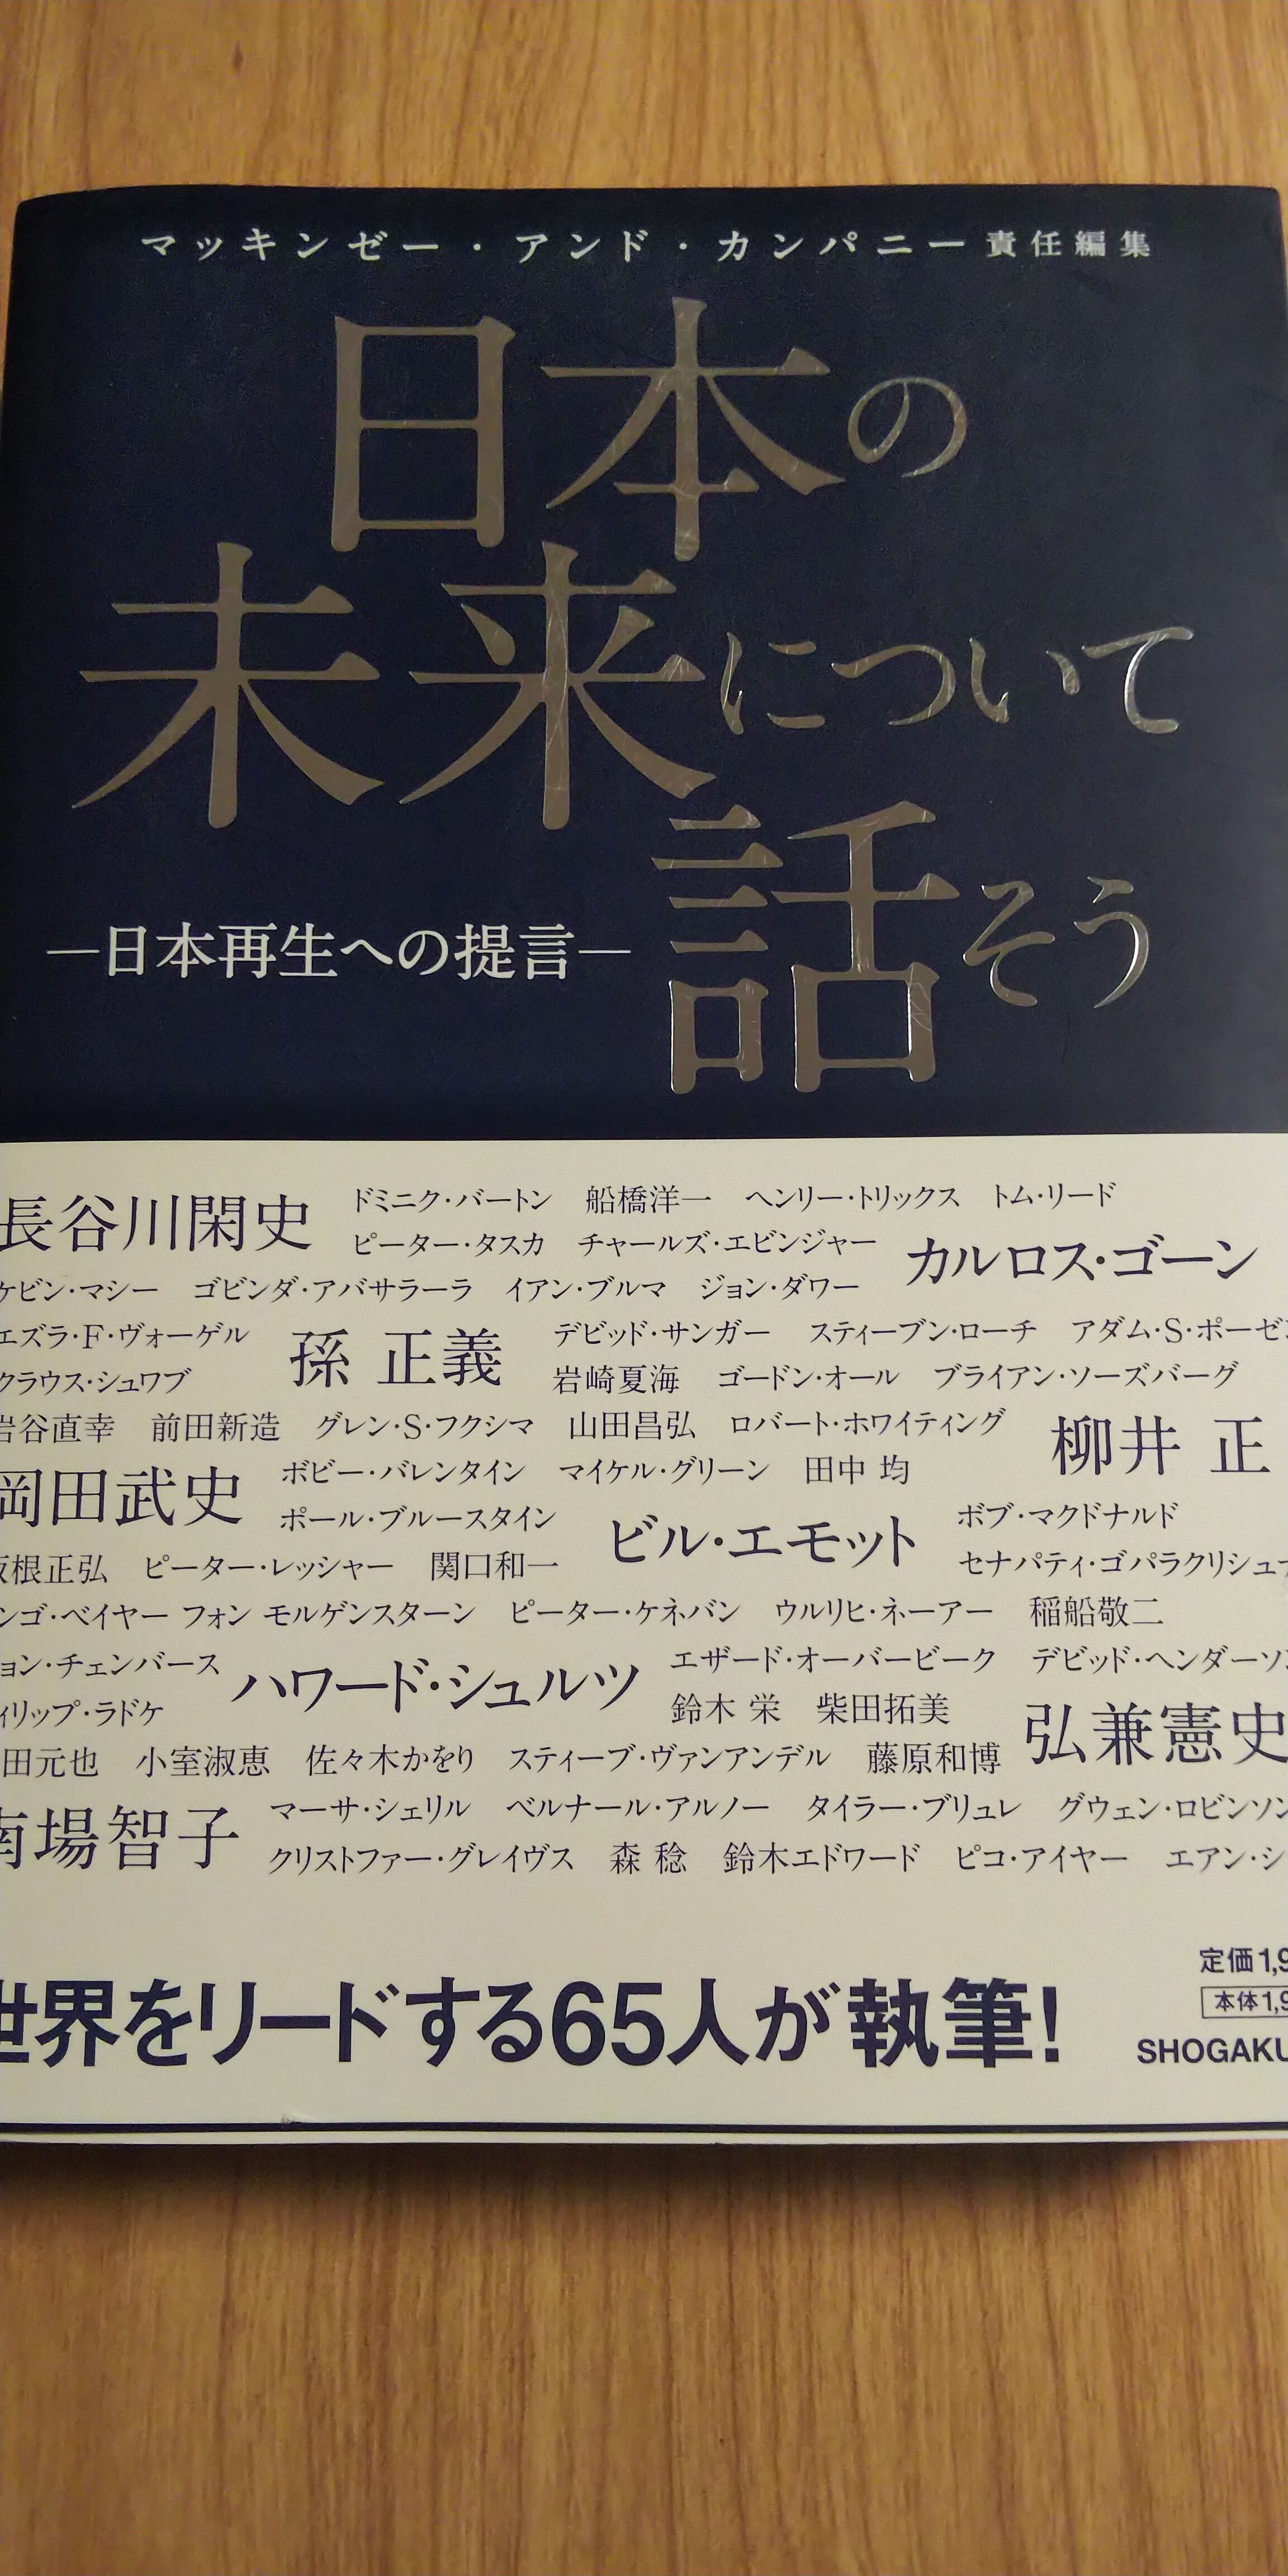 マッキンゼー・アンド・カンパニー責任編集
日本の
未来について
話そう
―日本再生への提言―
長谷川閑史 ドミニク・バートン 船橋洋一 ヘンリー・トリックス トム・リード
ピーター・タスカ チャールズ・エビンジャー カルロス・ゴーン
ケビン・マシー ゴビンダ・アバサラーラ イアン・ブルマ ジョン・ダワー
エズラ・F・ヴォーゲル 孫 正義 デビッド・サンガー スティーブン・ローチ アダム・S・ポーゼ
クラウス・シュワブ 岩崎夏海 ゴードン・オール ブライアン・ソーズバーグ
岩谷直幸 前田新造 グレン・S・フクシマ 山田昌弘 ロバート・ホワイティング 柳井 正
岡田武史 ボビー・バレンタイン マイケル・グリーン 田中 均
ポール・ブルースタイン ビル・エモット ボブ・マクドナルド
坂根正弘 ピーター・レッシャー 関口和一 セナパティ・ゴパラクリシュナ
ンゴ・ベイヤー フォン モルゲンスターン ピーター・ケネバン ウルリヒ・ネーアー 稲船敬二
ョン・チェンバース ハワード・シュルツ エザード・オーバービーク デビッド・ヘンダーソン
ィリップ・ラドケ 鈴木 栄 柴田拓美 弘兼憲史
田元也 小室淑恵 佐々木かをり スティーブ・ヴァンアンデル 藤原和博
南場智子 マーサ・シェリル ベルナール・アルノー タイラー・ブリュレ グウェン・ロビンソン
クリストファー・グレイヴス 森 稔 鈴木エドワード ピコ・アイヤー エアン・シ
世界をリードする65人が執筆!
定価1,9
本体1,9
SHOGAKU